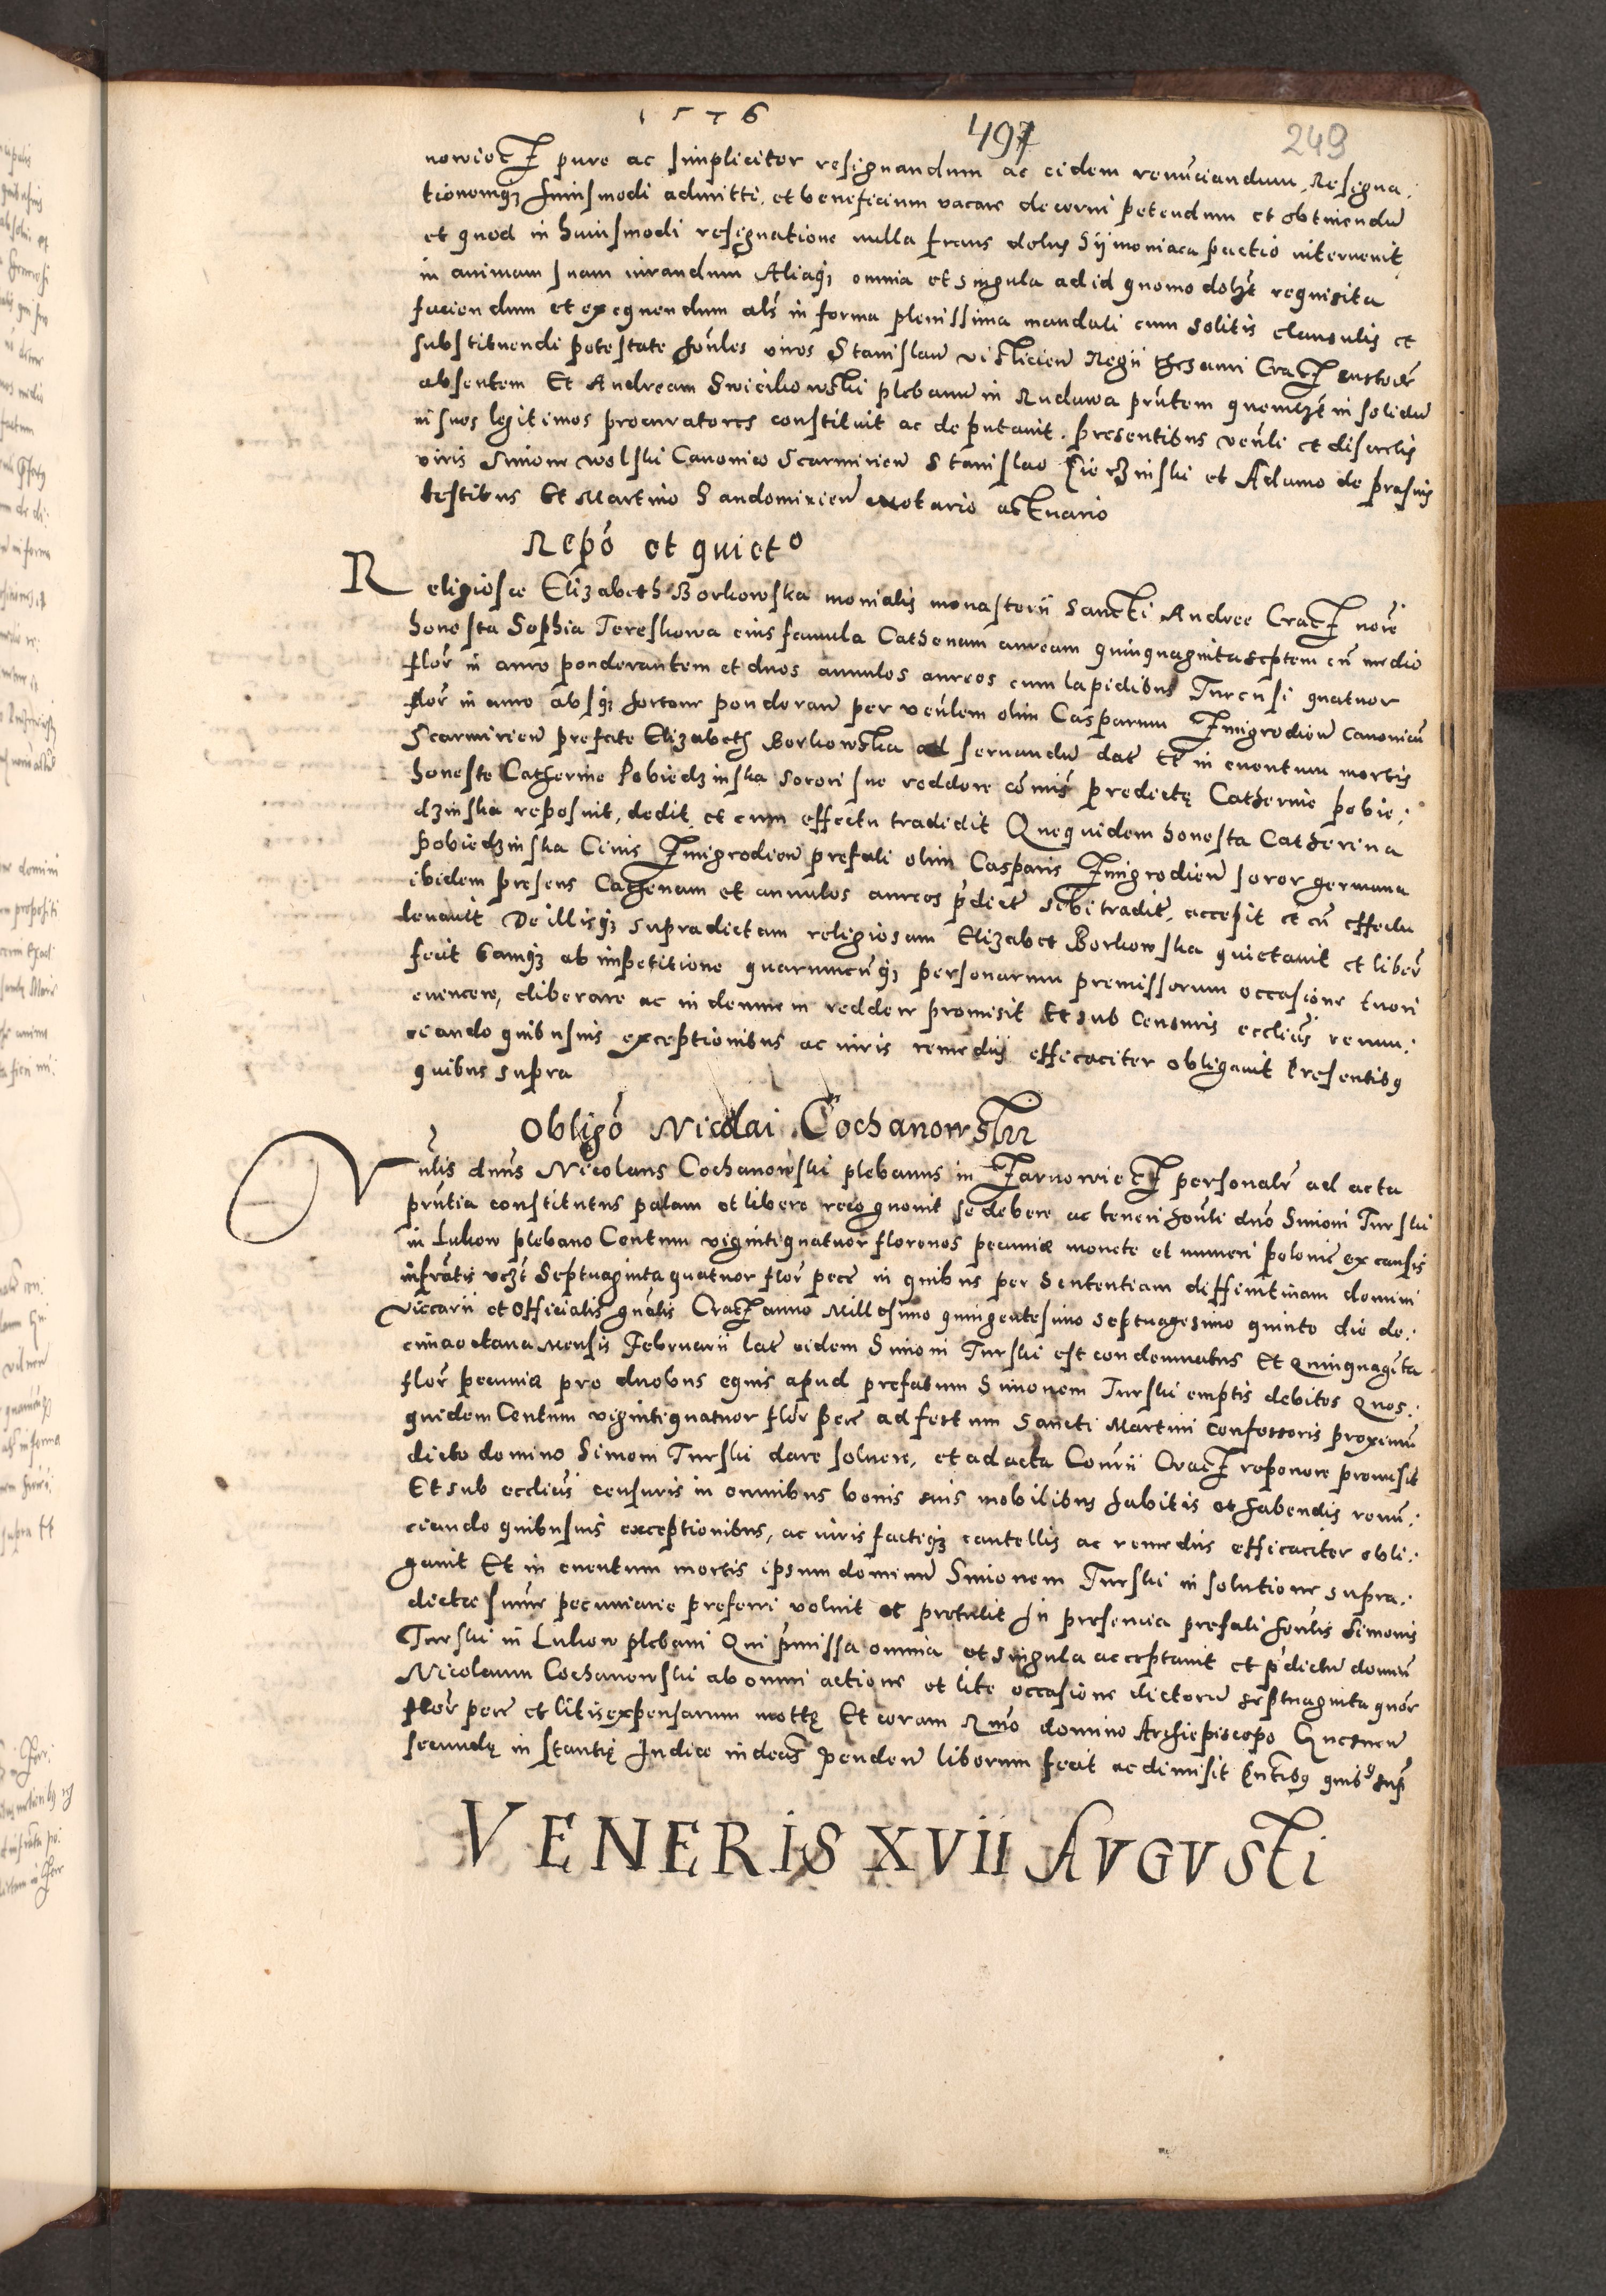 1576
497
249
nowiecz pure ac simpliciter resignandum ac eidem renunciandum, Resigna:
tionemq3 huiusmodi admitti, et beneficium vacare decerni petendum et obtinendū
et quod in huiusmodi resignatione nulla fraus dolus Sijmoniaca pactio intervenit
in animam suam iurandum Aliaq3 omnia et singula ad id quomodolz̄t requisita
faciendum et exequendum als̄ in forma plenissima mandati cum solitis clausulis et
substituendi potestate hon̄les viros Stanislaū vislicieñ Regii thesauri Crac̄ custodē
absentem Et Andream Swiecikowski plebanū in Rudawa prn̄tem quemlz̄t in solidū
in suos legitimos procuratores constituit ac deputavit. presentibus ven̄li et discretis
viris Simone wolski Canonico Scarmirieñ Stanislao et Adamo de prasnis
testibus Et Martino Sandomirieñ Notario actuario
Repō et quietº
Religiose Elizabeth Borkowska monialis monasterii Sancti Andree Crac̄ noīe
honesta Sophia Tereskowa eius famula Cathenam auream quinquaginta septem cū medio
flor̄ in auro ponderantem et duos annulos aureos cum lapidibus Turcusi quatuor
flor̄ in auro absq3 ponderañ per ven̄lem olim Casparum Zmigrodieñ canonicū
Scarmirieñ prefate Elizabeth Borkowska ad servandū dat̄ Et in eventum mortis
honeste Catherine Pobiedzinska sorori sue reddere cōmis̄ predictę Catherine pobie:
dzinska reposuit, dedit et cum effectu tradidit Quequidem honesta Catherina
pobiedzinska Civis Zmigrodieñ prefati olim Casparis Zmigrodieñ soror germana
ibidem presens Cathenam et annulos aureos p̄dict̄ sibi tradit̄, accepit et cū effectu
levavit De illisq3 supradictam religiosam Elizabet Borkowska quietavit et liber̄
fecit Eamq3 ab impetitione quarumcūq3 personarum premissorum occasione tueri
evincere, eliberare ac indemnem reddere promisit Et sub Censuris eccliās̄ renun:
ciando quibusvis exceptionibus ac iuris remediis efficaciter obligavit Presentibꝰ
quibus supra
Obligō Nicolai Cochanowskii
Vn̄lis dnūs Nicolaus Cochanowski plebanus in Zarnowiecz personalr̄ ad acta
prn̄tia constitutus palam et libere recognovit se debere ac teneri hon̄li dnō Simoni Turski
in Lukow plebano Centum vigintiquatuor florenos pecuniæ monete et numeri polonie ex causis
infrātis vcz̄t Septuaginta quatuor flor̄ pecc̄ in quibus per Sententiam diffinitivam domini
viccarii et Officialis gn̄alis Crac̄ anno Millesimo quingentesimo septuagesimo quinto die de:
cima octava Mensis Februarii lat̄ eidem Simoni Turski est condemnatus Et Quinquaginta
flor̄ pecuniæ pro duobus equis apud prefatum Simonem Turski emptis debitos Quos:
quidem Centum vigintiquatuor flor̄ pecc̄ ad festum Sancti Martini confessoris proximū
dicto domino Simoni Turski dare solvere, et ad acta Cons̄rii Crac̄ reponere promisit
Et sub eccliās̄ censuris in omnibus bonis suis mobilibus habitis et habendis renū:
ciando quibusvis exceptionibus, ac iuris factiq3 cautellis ac remediis efficaciter obli:
gavit Et in eventum mortis ipsum dominū Simonem Turski in solutione supra:
dictæ sum̄e pecuniarie preferri voluit et pretulit In presencia prefati hon̄lis Simonis
Turski in Lukow plebani Qui p̄missa omnia et singula acceptavit et p̄dictū dominū
Nicolaum Cochanowski ab omni actione et lite occasione dictorū septuaginta quor̄
flor̄ pecc̄ et litis expensarum mottę Et coram Rmō domino Archiepiscopo Gnesneñ
secundę instantię Iudice indecis̄ pendeñ liberum fecit ac dimisit
VENERIS XVII AVGVSti